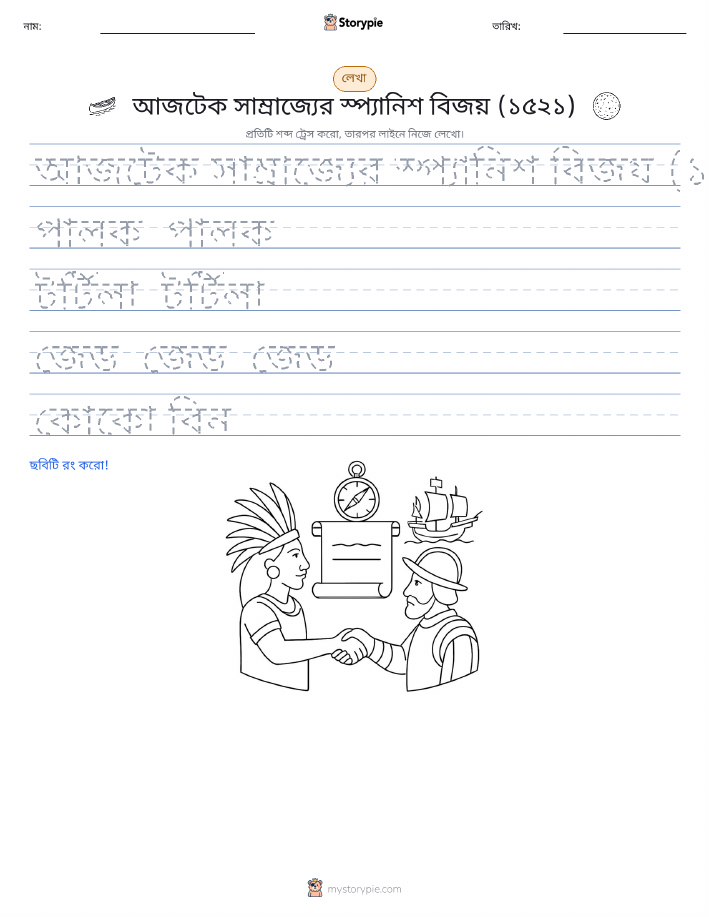 নাম:
Storypie
তারিখ:
লেখা
আজটেক সাম্রাজ্যের স্প্যানিশ বিজয় (১৫২১)
প্রতিটি শব্দ ট্রেস করো, তারপর লাইনে নিজে লেখো।
আজটেক সাম্রাজ্যের স্প্যানিশ বিজয় (১
পালক পালক
টর্টিলা টর্টিলা
জেড জেড জেড
কোকো বিন
ছবিটি রং করো!
mystorypie.com